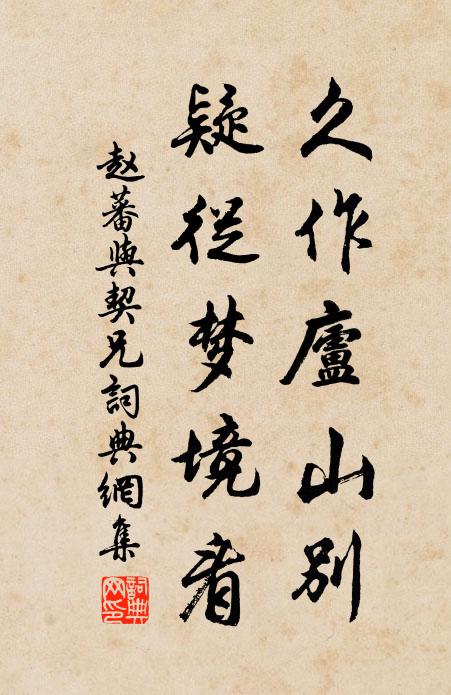 久作廬山别
疑從梦境看
赵蕃與契兄詞典網集
詞典網印